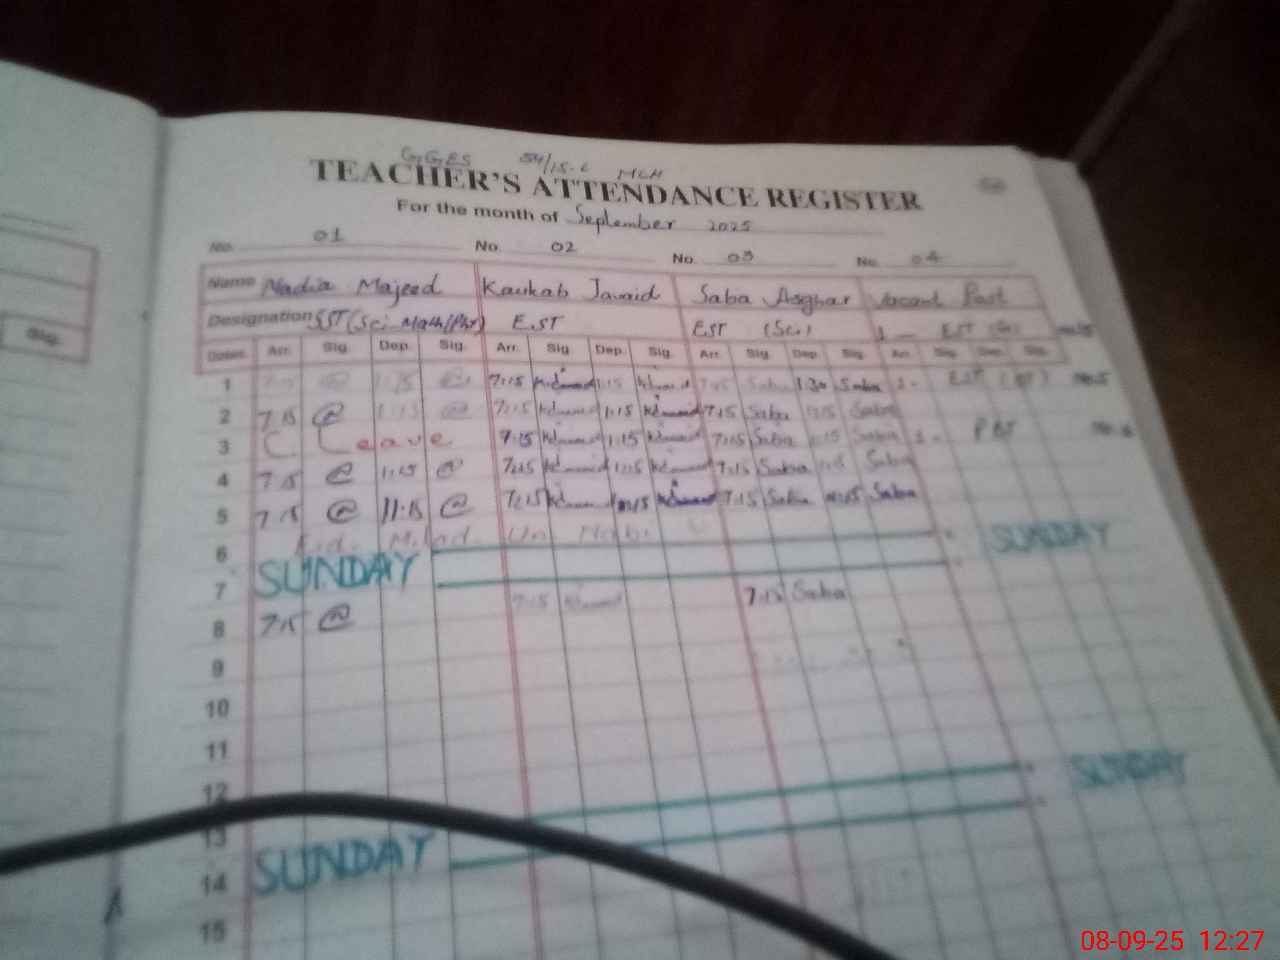 GGES 54/15-L MCH
TEACHER'S ATTENDANCE REGISTER
For the month of September 2025
No. 01 No. 02 No. 03 No. 04
Name Nadia Majeed Kaukab Javaid Saba Asghar Vacant Post
Designation SST (Sci. Math/Phy) E.ST EST (Sci) 1 - EST
Dates Arr. Sig. Dep. Sig. Arr. Sig. Dep. Sig. Arr. Sig. Dep. Sig. Arr. Sig. Dep. Sig.
Sig.
1 7:15 1:15 7:15 Saba 1:30 Saba 1-
2 7:15 @ 1:15 @ 7:15 1:15 7:15 Saba 1:15 Saba
3 C Leave 7:15 1:15 7:15 Saba 1:15 Saba 1-
4 7:15 @ 1:15 @ 7:15 1:15 7:15 Saba 1:15 Saba
5 7:15 @ 11:15 @ 7:15 11:15 7:15 Saba 11:15 Saba
6 Eid Milad Un Nabi
7 SUNDAY SUNDAY
8 7:15 @ 7:15 7:15 Saba
9
10
11
12
13
14 SUNDAY SUNDAY
15
08-09-25 12:27